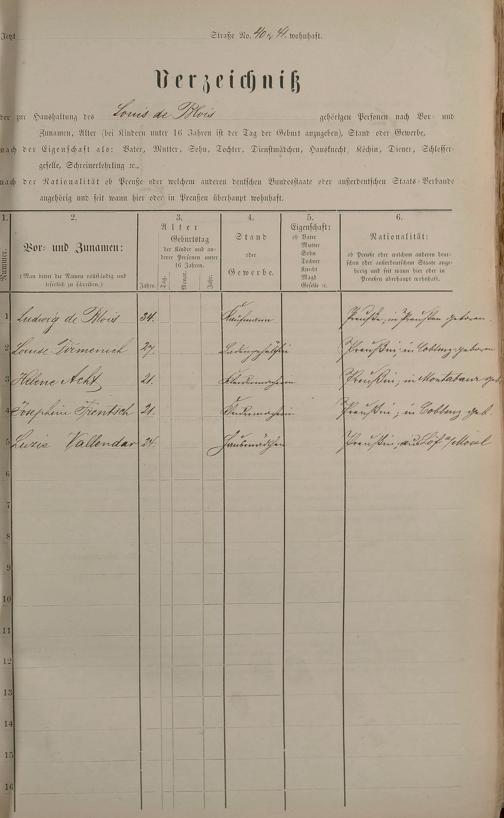 Jetzt Straße No. 40 & 41. wohnhaft.
Verzeichniß
der zur Haushaltung des Louis de Blois gehörigen Personen nach Vor- und
Zunamen, Alter (bei Kindern unter 16 Jahren ist der Tag der Geburt anzugeben), Stand oder Gewerbe,
nach der Eigenschaft als: Vater, Mutter, Sohn, Tochter, Dienstmädchen, Hausknecht, Köchin, Diener, Schlosser-
geselle, Schreinerlehrling ꝛc.,
nach der Nationalität ob Preuße oder welchem anderen deutschen Bundesstaate oder außerdeutschen Staats-Verbande
angehörig und seit wann hier oder in Preußen überhaupt wohnhaft.
1. 2. 3. 4. 5. 6.
Nummer.
Vor- und Zunamen:
(Man bittet die Namen vollständig und
leserlich zu schreiben.)
Alter
Geburtstag
der Kinder und an-
derer Personen unter
16 Jahren.
Jahre. Tag. Monat. Jahr.
Stand
oder
Gewerbe.
Eigenschaft:
ob Vater
Mutter
Sohn
Tochter
Knecht
Magd
Geselle ꝛc.
Nationalität:
ob Preuße oder welchem anderen deut-
schen oder außerdeutschen Staate ange-
hörig und seit wann hier oder in
Preußen überhaupt wohnhaft.
1 Ludwig de Blois 34. Kaufmann Preuße, in Preußen geboren.
2 Louise Firmenich 27. Ladengehülfin Preußin, in Coblenz geboren
3 Helene Acht 21. Kleidermacherin Preußin, in Montabaur geb.
4 Josephine Trentsch 21. Preußin, in Coblenz geb.
5 Luzia Vallendar 24. Preußin, aus Löf a/Mosel
6
7
8
9
10
11
12
13
14
15
16